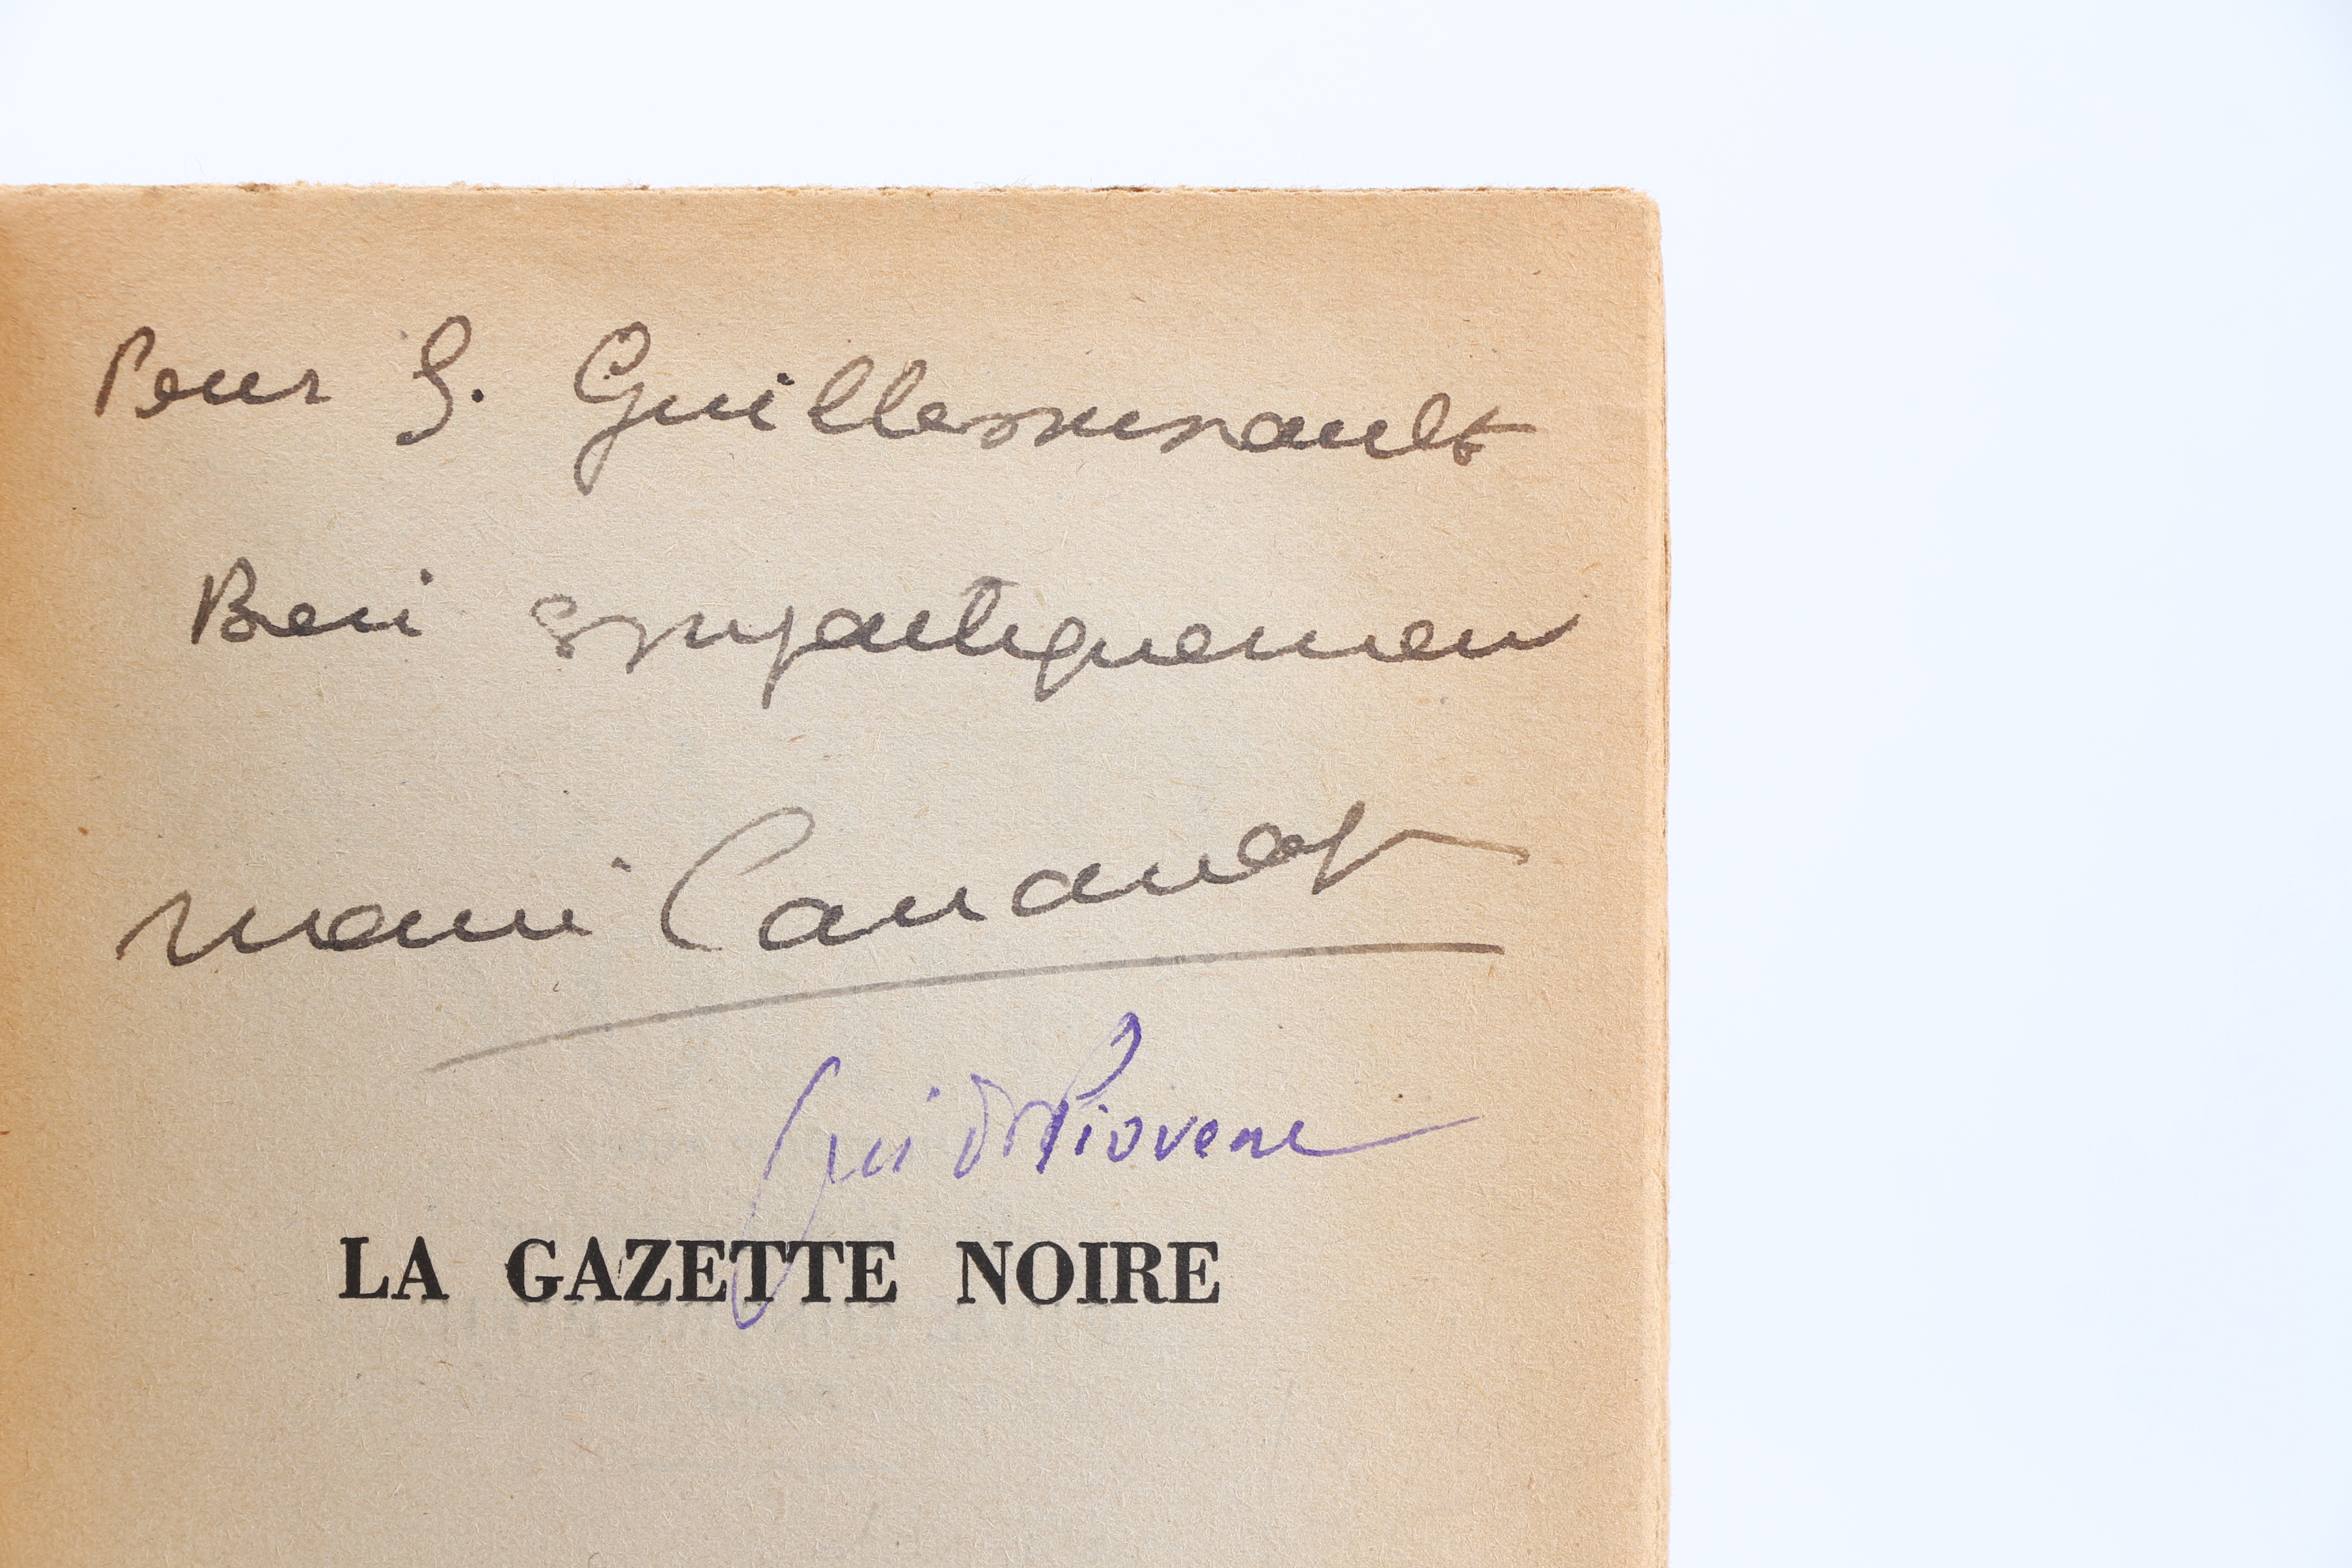 Pour G. Guillemeau​lt
Bien sympatiquement
Marie Canavaggia
Guido Piovene
LA GAZETTE NOIRE